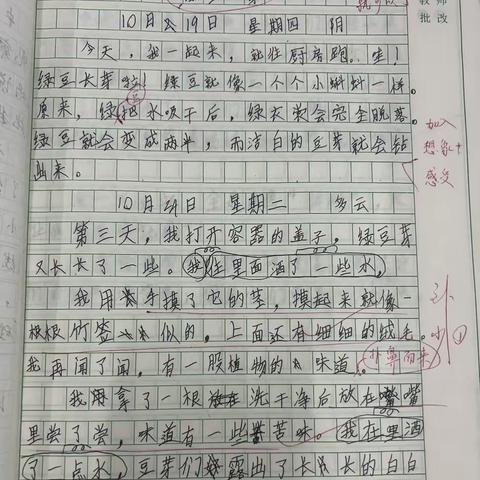 教师
批改
10月19日 星期四 阴
今天，我一起来，就往厨房跑。哇！
绿豆长芽啦！绿豆就像一个个小蝌蚪一样。
原来，绿豆把水吸干后，绿衣裳会完全脱落。
绿豆就会变成两半，而洁白的豆芽就会钻
出来。
加入
想象+
感受
10月24日 星期二 多云
第三天，我打开容器的盖子，绿豆芽
又长长了一些。我往里面洒了一些水，
我用手摸了它的茎，摸起来就像一
根根竹签似的。上面还有细细的绒毛。
我再闻了闻，有一股植物的味道。
扑鼻而来
我拿了一根洗干净后放在嘴
里尝了尝，味道有一些苦味。我在里洒
了一点水，豆芽们露出了长长的白白